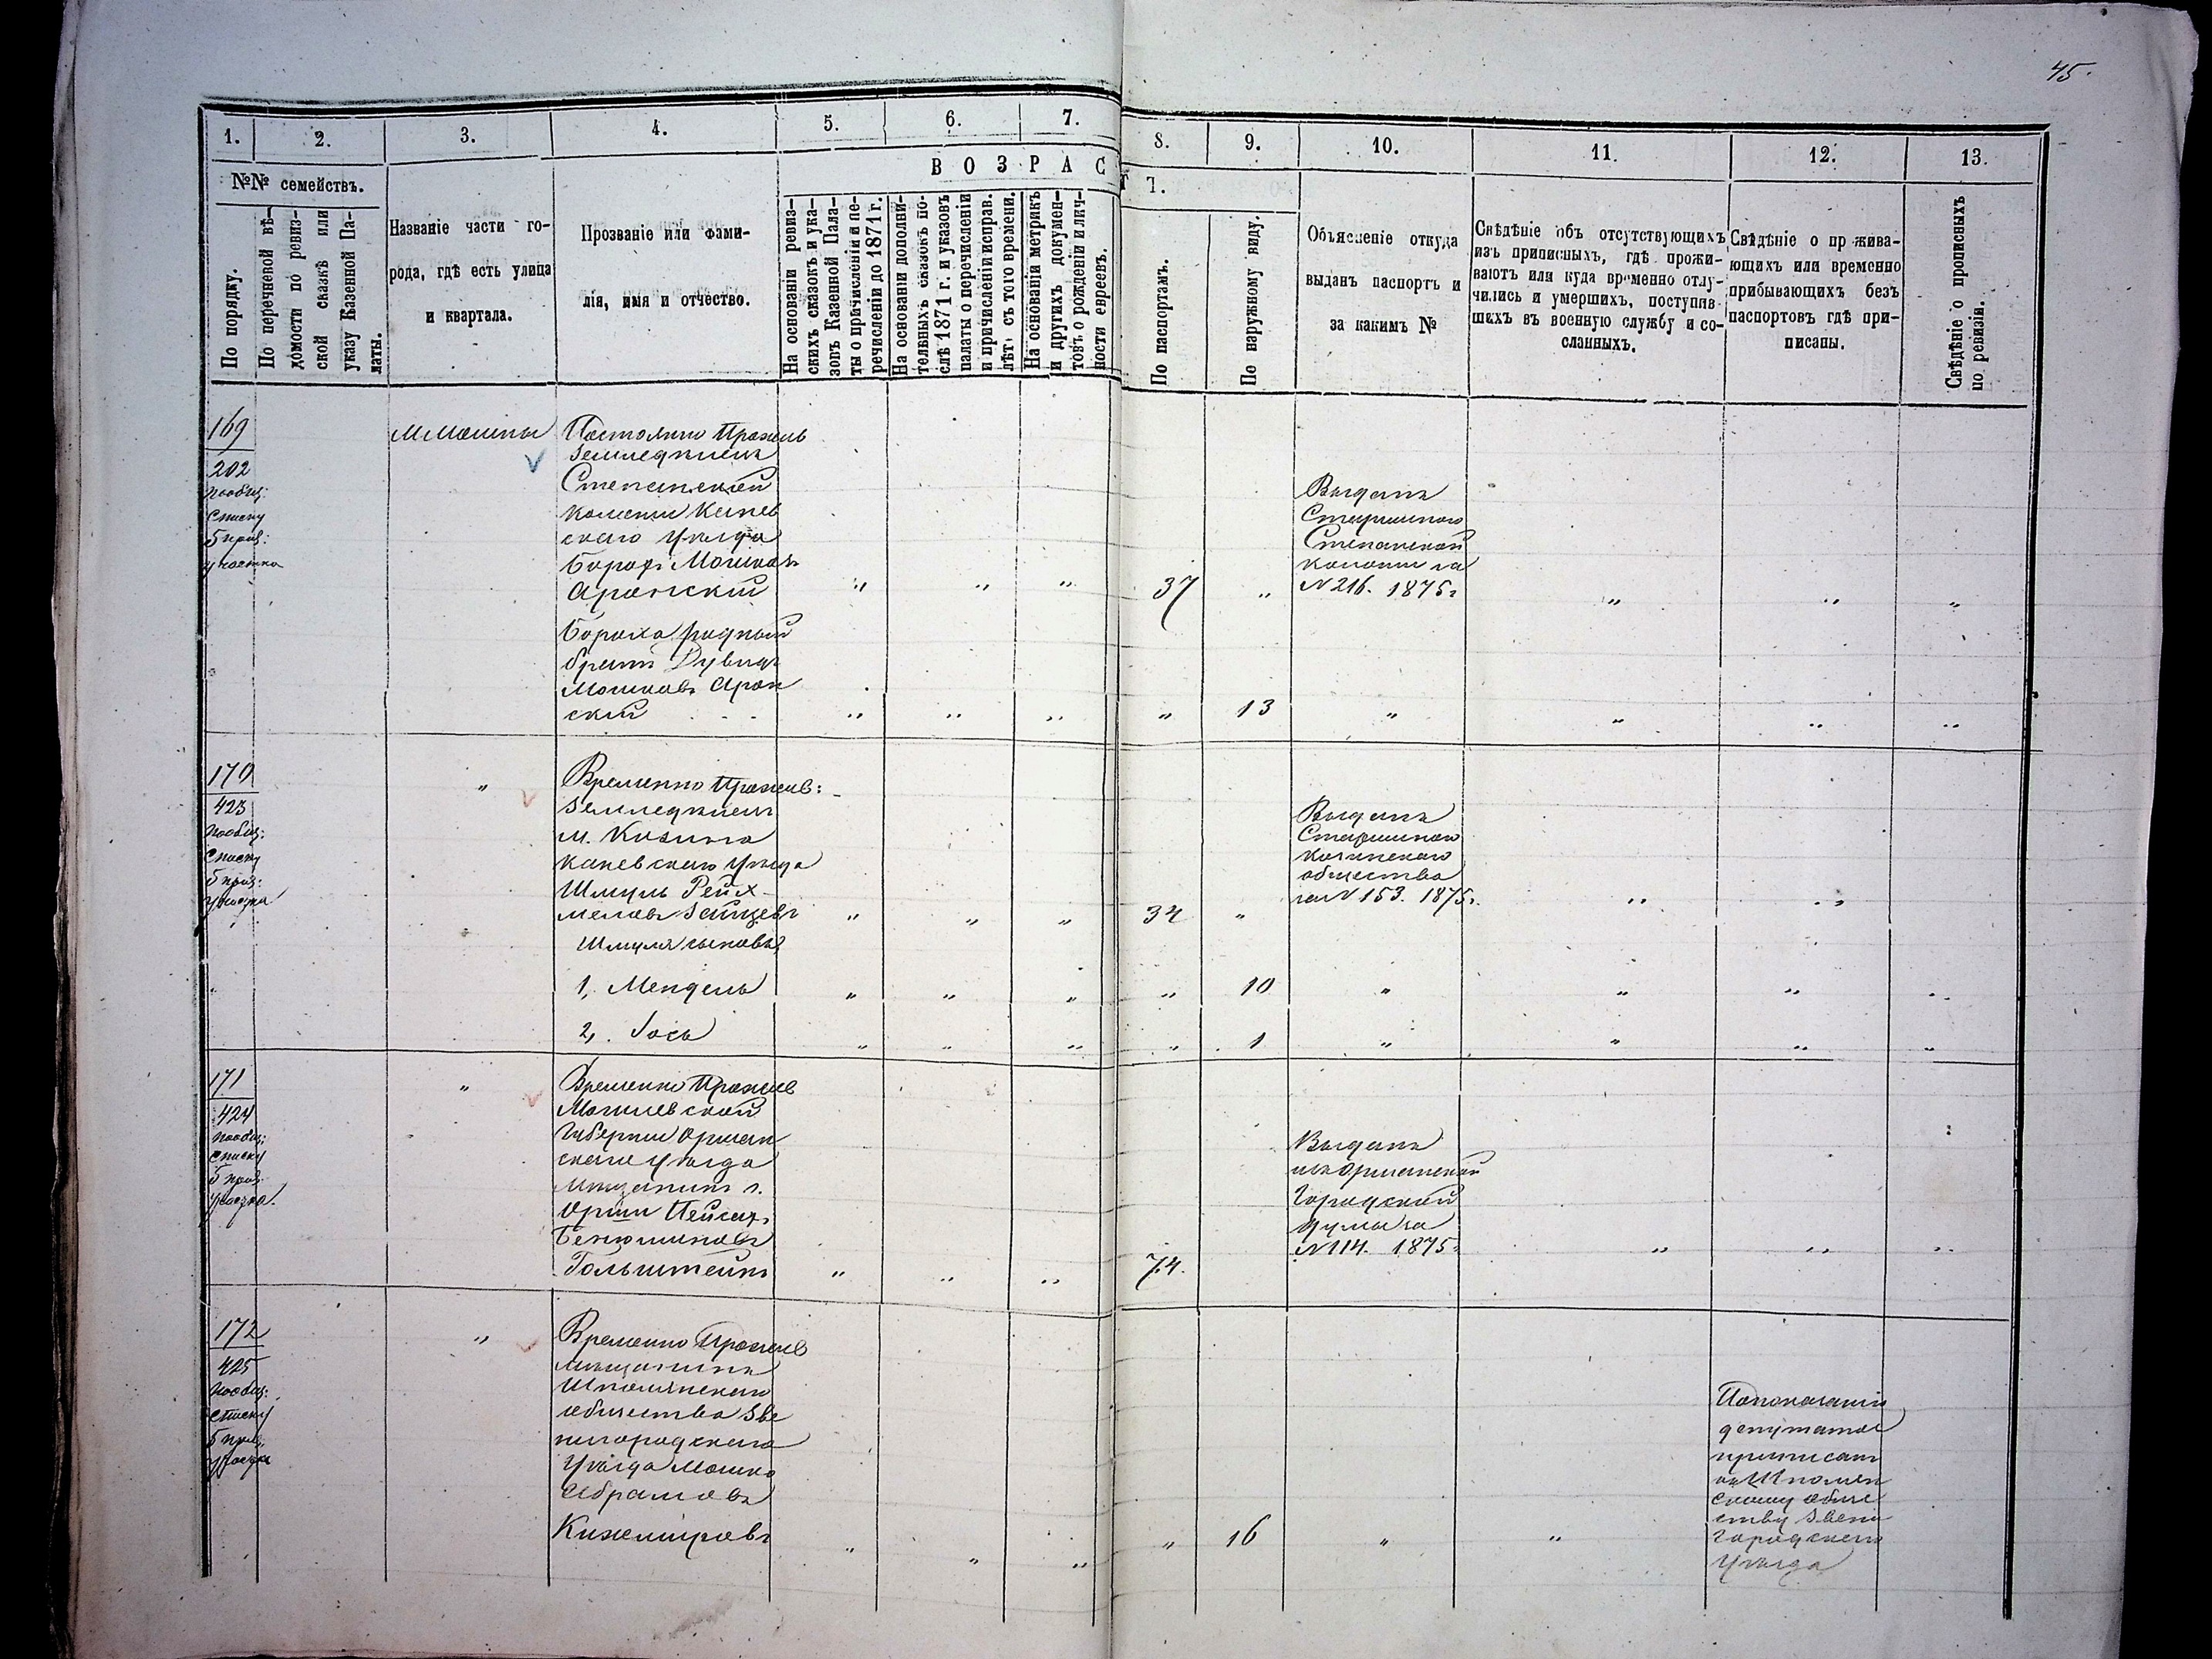 45.
1.
2.
3.
4.
5.
6.
7.
8.
9.
10.
11.
12.
13.
№№ семействъ.
По порядку.
По перечневой вѣ-
домости по ревиз-
ской сказкѣ или
указу Казенной Па-
латы.
Названіе части го-
рода, гдѣ есть улица
и квартала.
Прозваніе или фами-
лія, имя и отчество.
ВОЗРАС
Т Ъ.
На основаніи ревиз-
скихъ сказокъ и ука-
зовъ Казенной Пала-
ты о причисленіи и пе-
речисленіи до 1871 г.
На основаніи дополни-
тельныхъ сказокъ по-
слѣ 1871 г. и указовъ
палаты о перечисленіи
и причисленіи исправ.
лѣт. съ того времени.
На основаніи метрикъ
и другихъ докумен-
товъ о рожденіи и лич-
ности евреевъ.
По паспортамъ.
По наружному виду.
Объясненіе откуда
выданъ паспортъ и
за какимъ №
Свѣдѣніе объ отсутствующихъ
изъ приписныхъ, гдѣ прожи-
ваютъ или куда временно отлу-
чились и умершихъ, поступив-
шихъ въ военную службу и со-
сланныхъ.
Свѣдѣніе о прожива-
ющихъ или временно
прибывающихъ безъ
паспортовъ гдѣ при-
писаны.
Свѣдѣніе о прописныхъ
по ревизіи.
169
202
по общ:
списку
5 приз:
участка
М Мошны
Постоянно Прожив
Земледѣлецъ
Степанской
колоніи Канев
скаго уѣзда
Борохъ Мошковъ
Аронскій
" " "
37
"
Выданъ
Старшиною
Степанской
колоніи за
N 216. 1875г
" " "
Бороха родный
братъ Дувидъ
Мошковъ Арон
скій
" " "
"
13
"
" " "
170
423
по общ:
списку
5 приз:
участка
"
Временно Прожив:
Земледѣлецъ
м. Козина
Каневскаго уѣзда
Шмуль Рейх-
мелов Зайцевъ
" " "
34
"
Выданъ
Старшиною
Козинскаго
общества
за N 153. 1875г.
" "
Шмуля сыновья
1, Мендель
" " "
"
10
"
" " "
2, Іось
" " "
"
1
"
" " "
171
424
по общ:
списку
5 приз.
участка.
"
Временно Прожив
Могилевской
Губерніи Оршан
скаго уѣзда
мѣщанинъ г.
Орши Пейсах.
Бенюминовъ
Гольштейнъ
" " "
74.
Выданъ
изъ Оршанской
Городской
думы за
N 114. 1875г
" " "
172
425
по общ:
списку
5 приз.
участка
"
Временно Прожив
мѣщанинъ
Шполянскаго
общества Зве
нигородскаго
Уѣзда Мошко
Абрамовъ
Кижемировъ
" " "
"
16
"
"
По показанію
депутатов
приписан
къ Шполян
скому обще
ству Звени
городскаго
Уѣзда